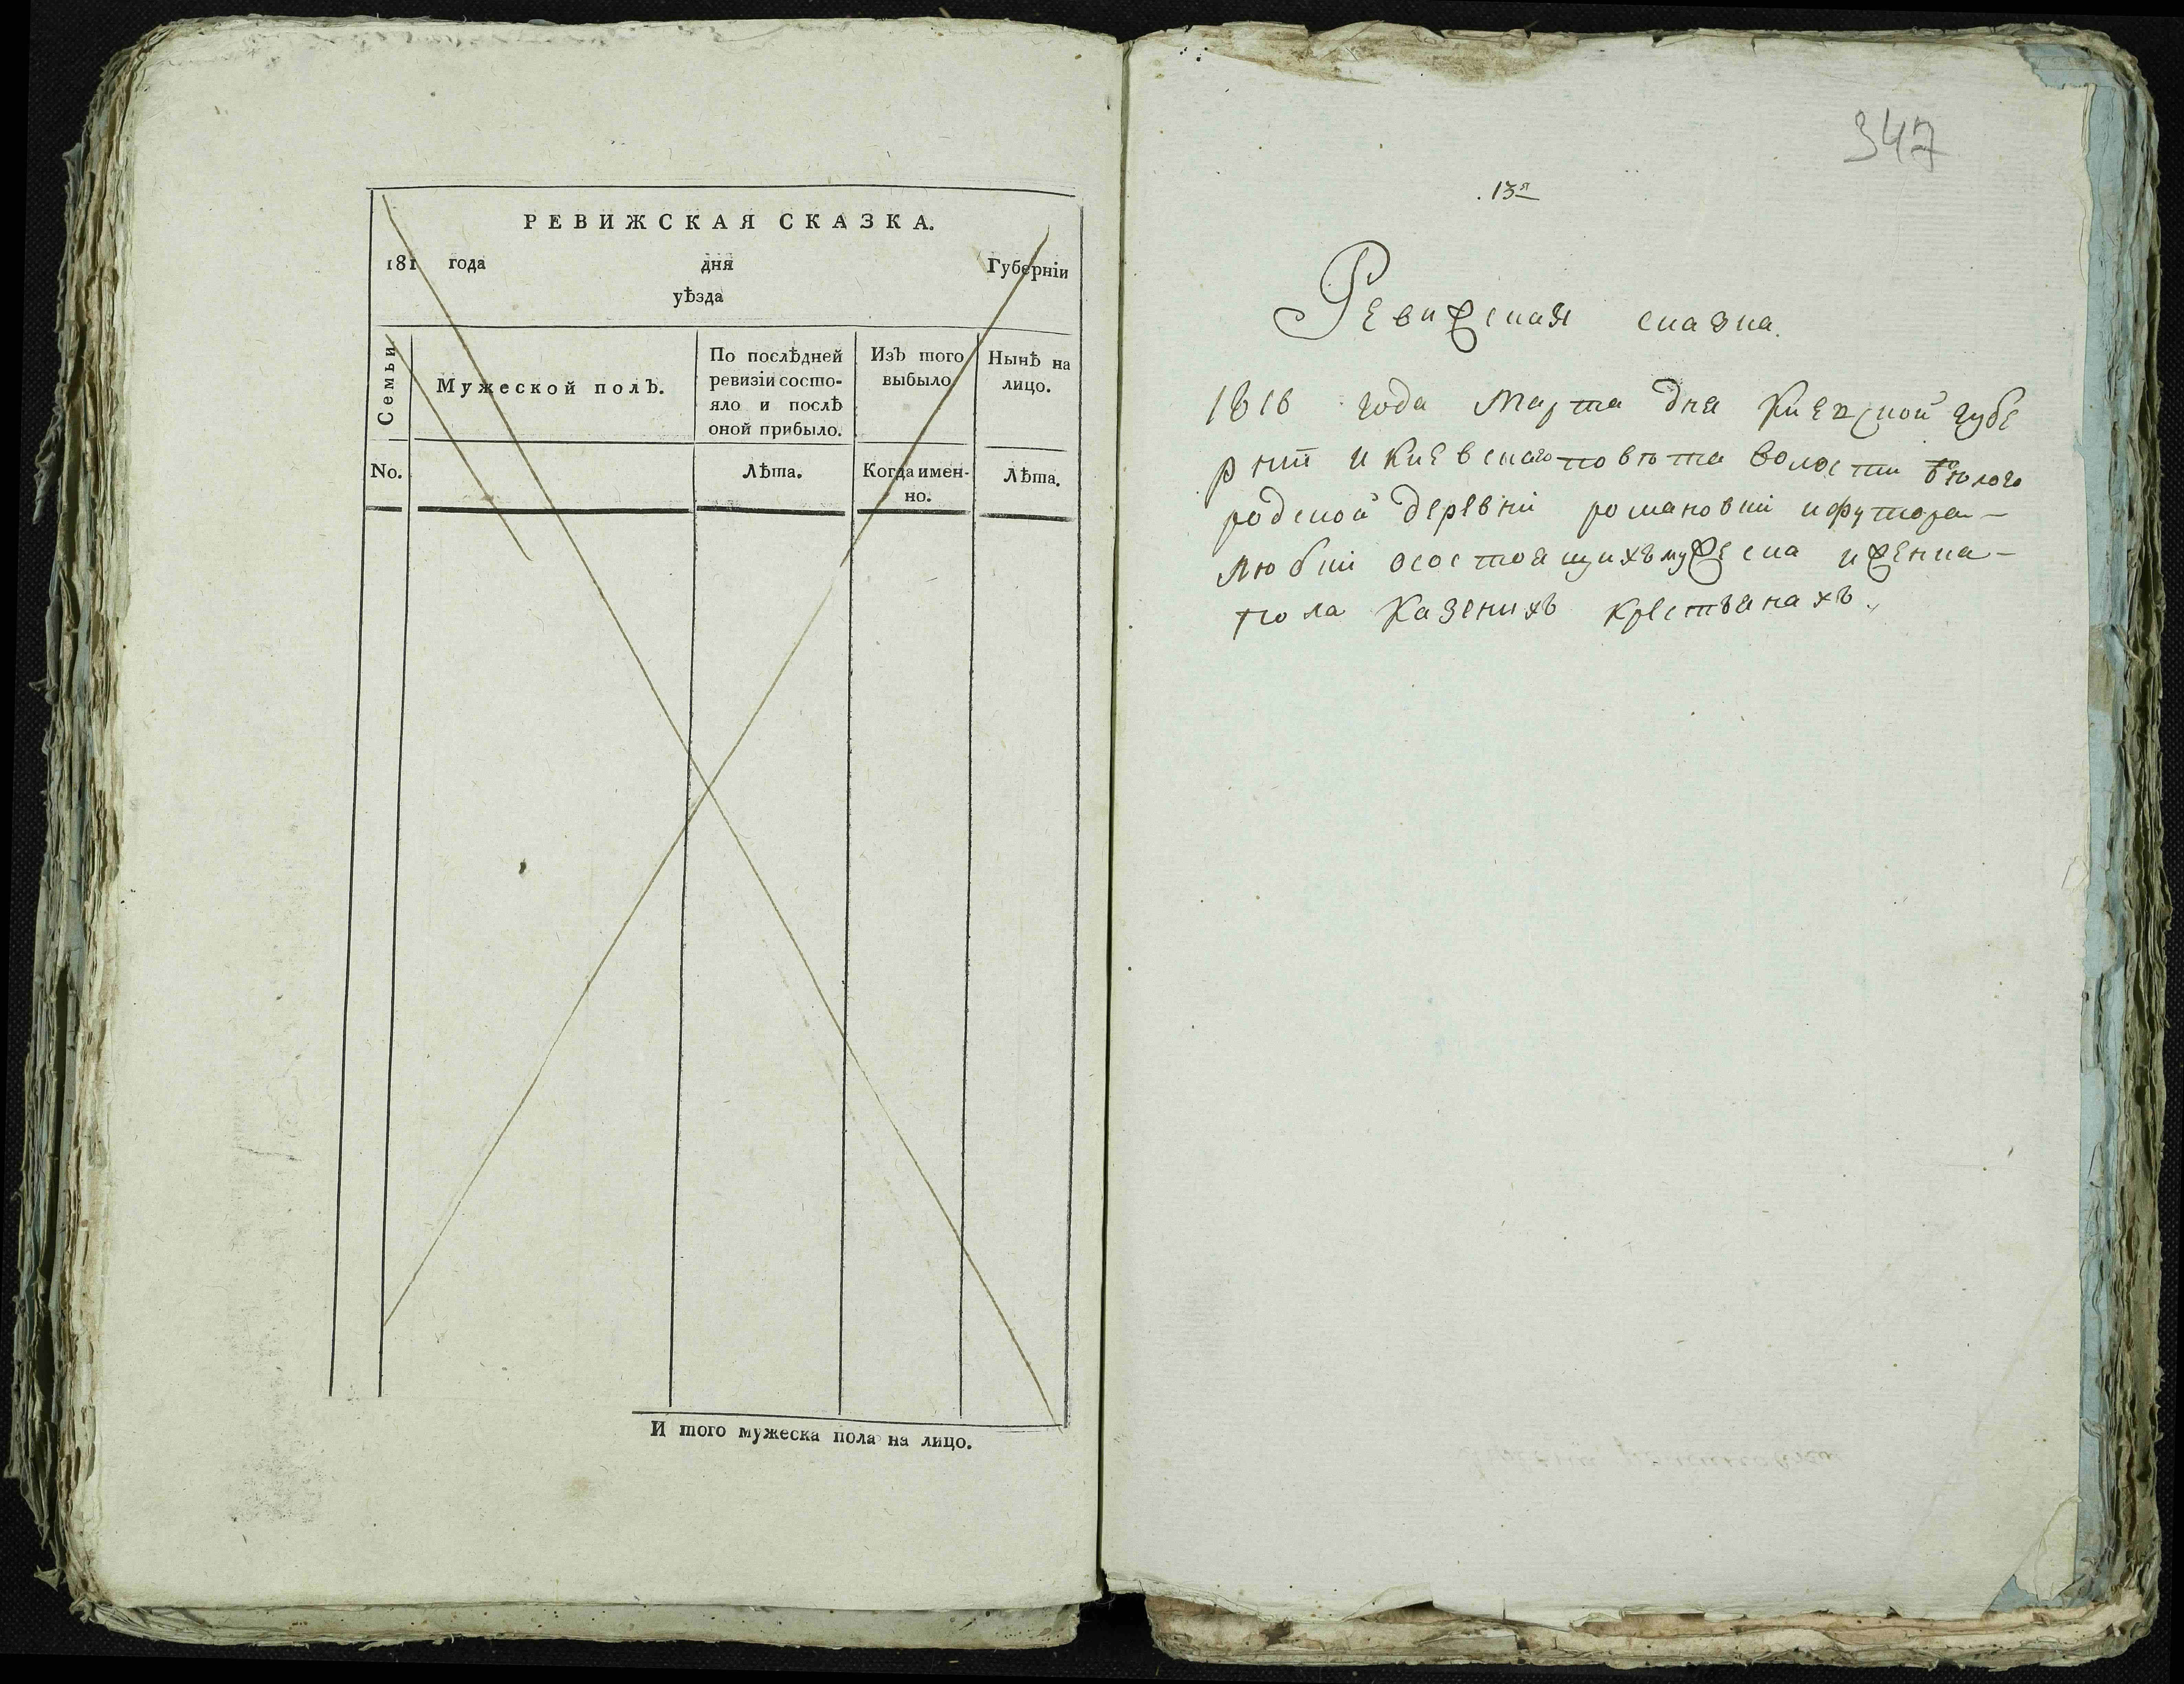 РЕВИЖСКАЯ СКАЗКА.
181 года дня Губерніи
уѣзда
Семьи
Мужеской полъ.
По послѣдней
ревизіи состо-
яло и послѣ
оной прибыло.
Изъ того
выбыло
Нынѣ на
лицо.
No.
Лѣта.
Когда имен-
но.
Лѣта.
И того мужеска пола на лицо.
347
13я
Ревижская сказка.
1816 года Марта дня Киевской губе
рнии и Киевскаго повѣта волости бѣлого
родской деревни романовки и футора-
Любки осостоящихъ мужеска и женка-
пола Казенихъ крестьянахъ.